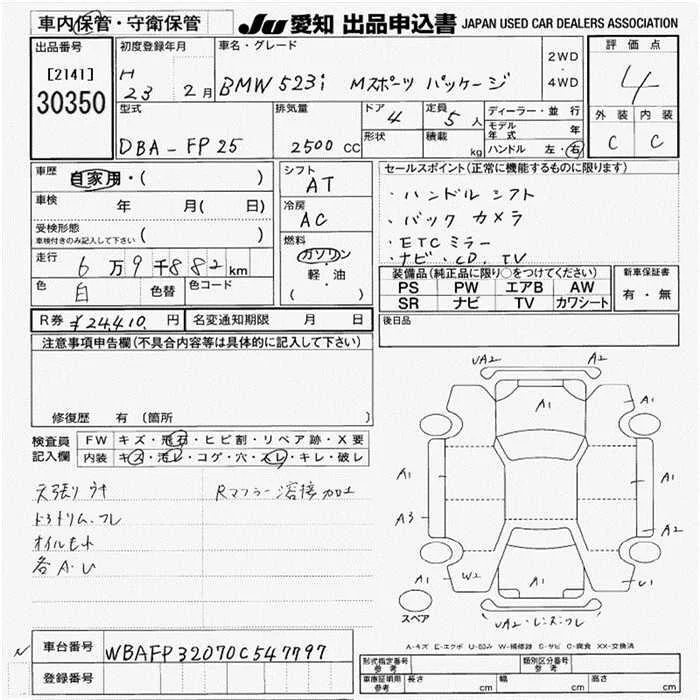 車内保管・守衛保管 JU 愛知 出品申込書 JAPAN USED CAR DEALERS ASSOCIATION
出品番号 初度登録年月 車名・グレード 評価点
[2141] H 23 2月 BMW 523i Mスポーツ パッケージ 2WD・4WD 4
30350
型式 排気量 ドア 4 定員 5人 ディーラー・並行 外装 内装
DBA-FP25 2500 CC 形状 積載 kg モデル年式 年 C C
ハンドル 左・右
車歴 自家用・( ) シフト AT セールスポイント(正常に機能するものに限ります)
車検 年 月( 日) 冷房 AC ・ハンドル シフト
受検形態 ( ) ・バック カメラ
車検付きのみ記入して下さい
走行 6万9千882km 燃料 ガソリン ・ETCミラー
・ナビ・CD、TV
色 白 色替 色コード 軽・油 ( ・ )
装備品(純正品に限り○をつけてください) 新車保証書
PS PW エアB AW 有・無
SR ナビ TV カワシート
R券 ¥24,410. 円 名変通知期限 月 日 後日品
注意事項申告欄(不具合内容等は具体的に記入して下さい)
修復歴 有(箇所
検査員記入欄 FW キズ・飛石・ヒビ割・リペア跡・X要
内装 キズ・汚レ・コゲ・穴・スレ・キレ・破レ
天張りウキ Rマフラー溶接加工
ドアトリム・フレ
オイルモレ
各A・U
UA2 A2
A1
A1
A1 A1
A3 A2
A1 W2 A1 U1
スペア
UA2・レンズ・フレ
A-キズ E-エクボ U-凹み W-補修跡 S-サビ C-腐食 XX-交換済
車台番号 WBAFP32070C547797
登録番号
形式指定番号 参考 類別区分番号 参考
車庫証明用 参考 長さ cm 幅 cm 高さ cm